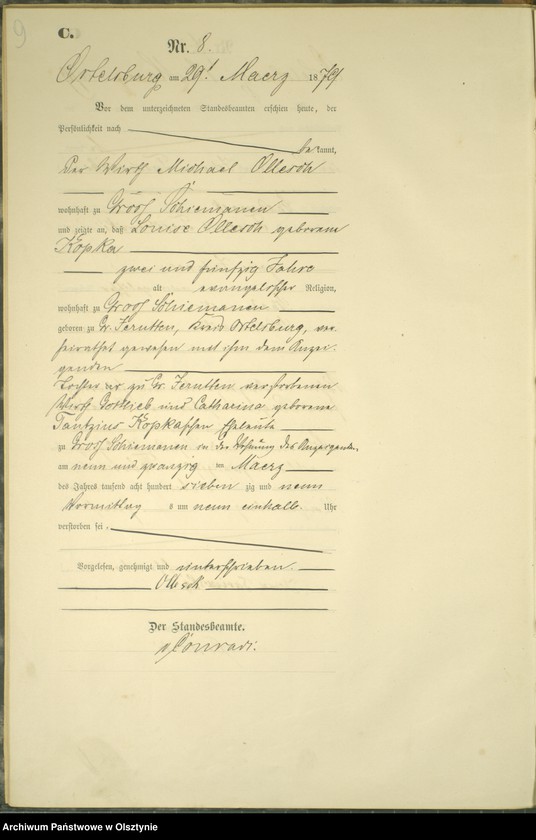 9
C.
Nr. 8.
Ortelsburg am 29t Maerz 1879
Vor dem unterzeichneten Standesbeamten erschien heute, der
Persönlichkeit nach
be kannt,
der Wirth Michael Ollesch
wohnhaft zu Groß Schiemanen
und zeigte an, daß Louise Ollesch geborene
Kopka
zwei und funfzig Jahre
alt evangelischer Religion,
wohnhaft zu Groß Schiemanen
geboren zu Gr. Jerutten, Kreis Ortelsburg, ver-
heirathet gewesen mit ihm dem Anzei-
genden
Tochter der zu Gr. Jerutten verstorbenen
Wirth Gottlieb und Catharina geborene
Kopkaschen Eheleute
zu Groß Schiemanen in der Wohnung des Anzeigenden,
am neun und zwanzig im Maerz
des Jahres tausend acht hundert sieben zig und neun
Vormittag s um neun einhalb Uhr
verstorben sei.
Vorgelesen, genehmigt und unterschrieben.
Ollesch
Der Standesbeamte.
Conradi.
Archiwum Państwowe w Olsztynie